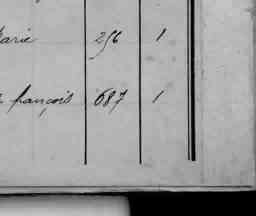 Marie 256 1
françois 687 1